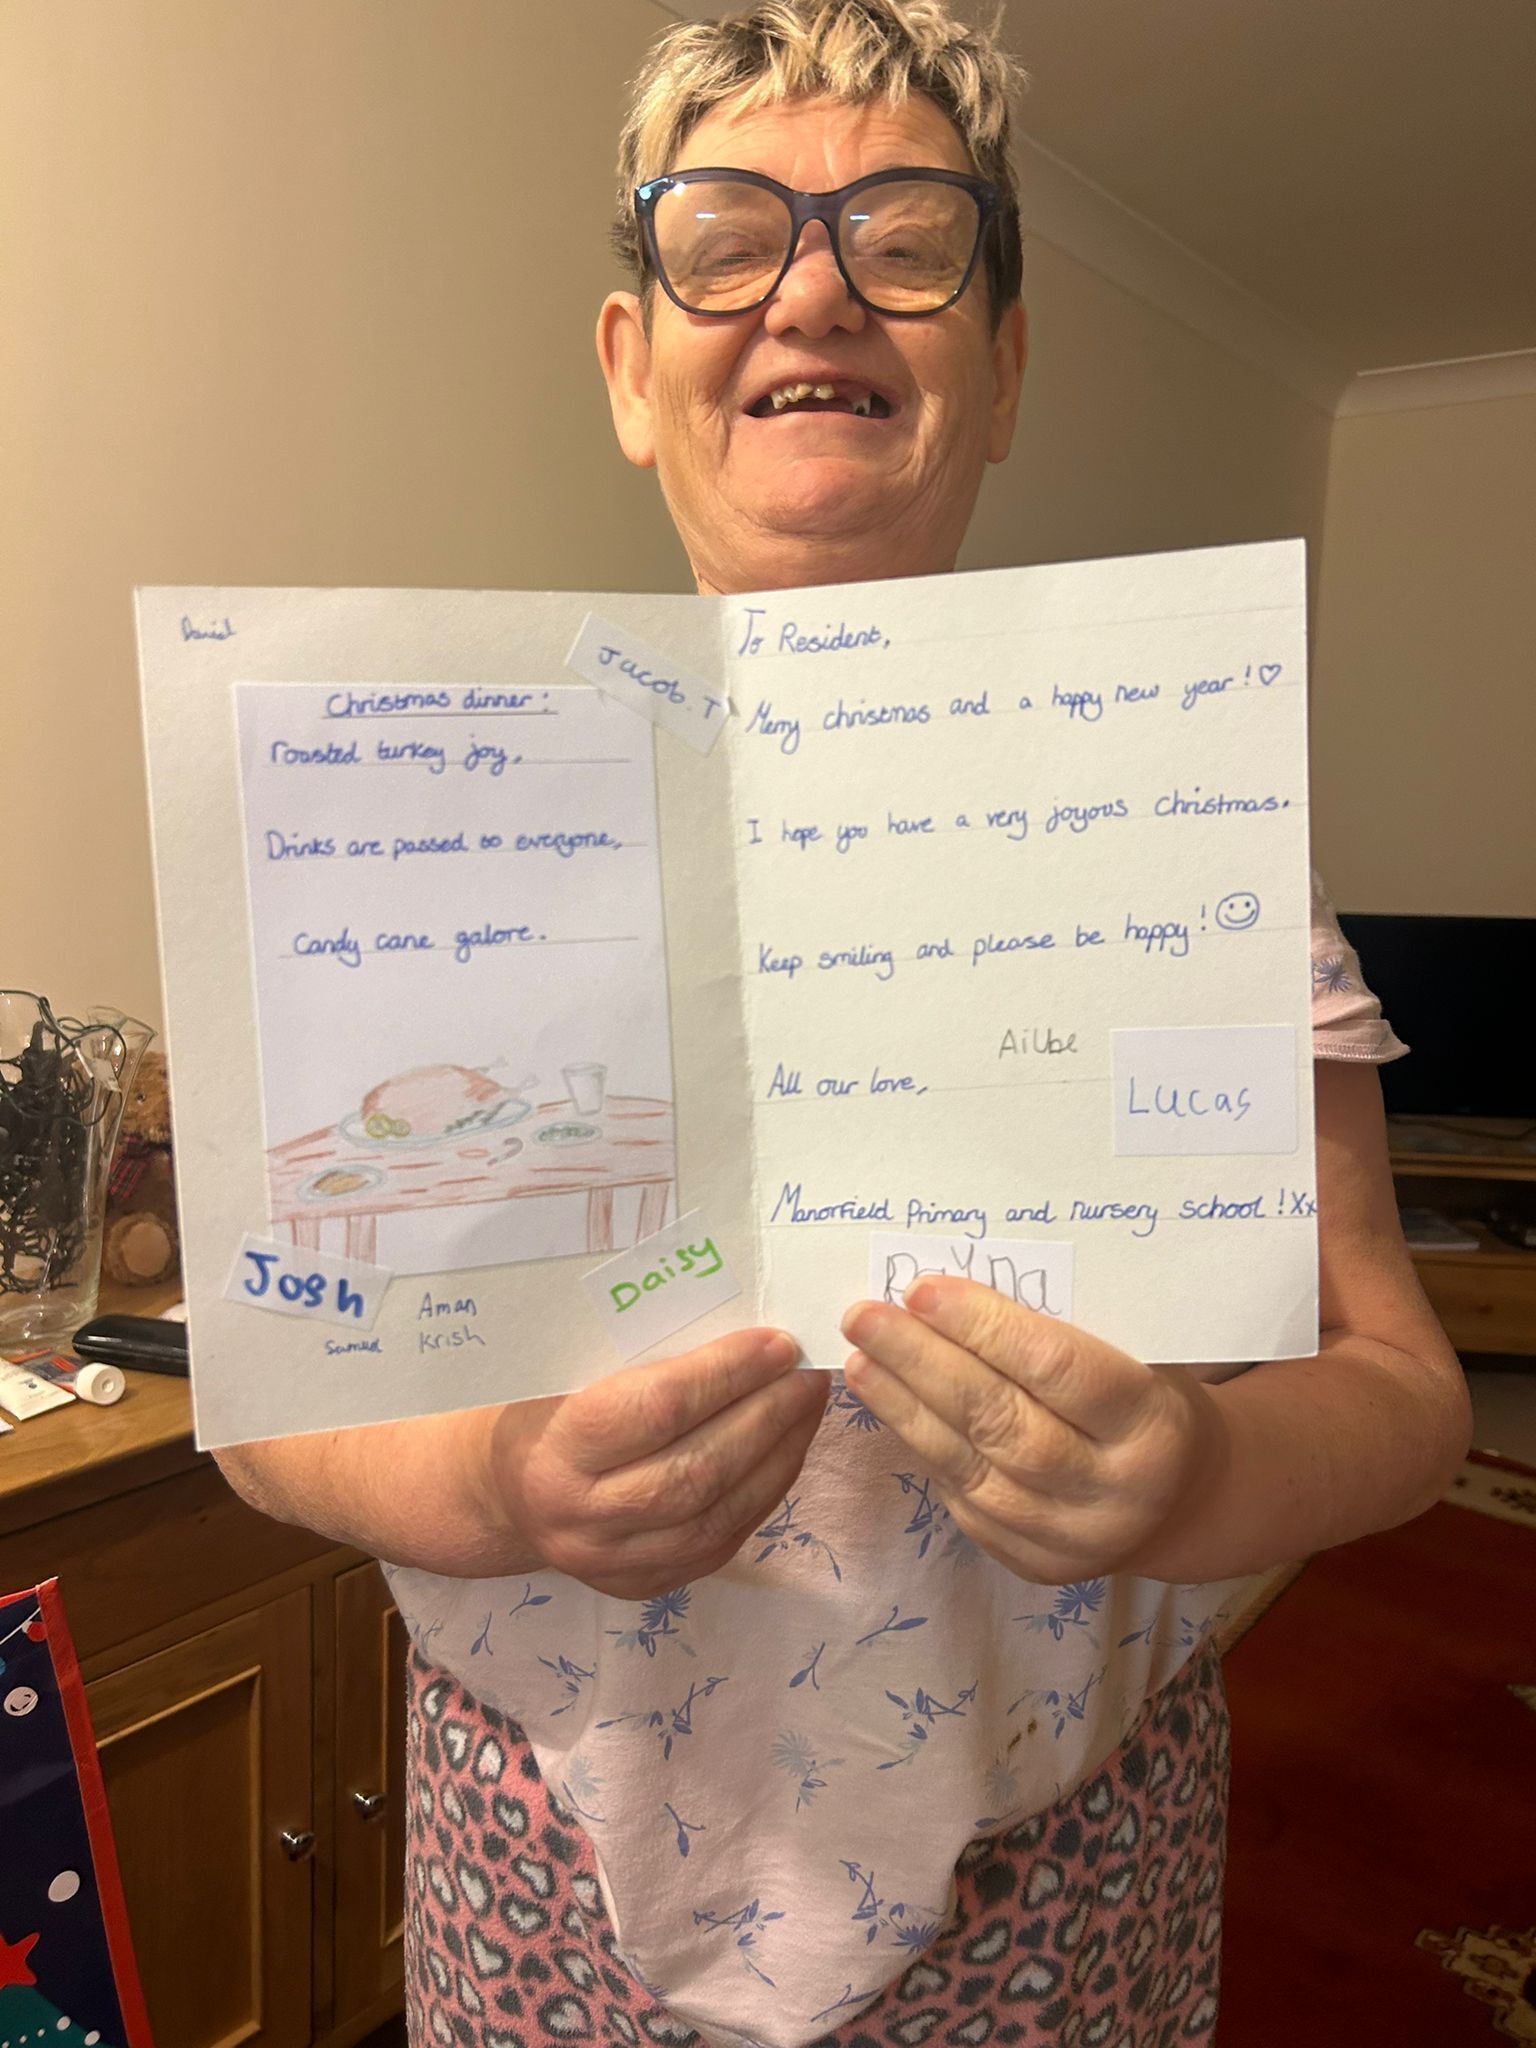 Daniel
Jacob.T
Christmas dinner:
roasted turkey joy,
Drinks are passed to everyone,
Candy cane galore.
Josh
Samuel
Aman
Krish
Daisy
To Resident,
Merry christmas and a happy new year!♡
I hope you have a very joyous Christmas.
Keep smiling and please be happy!☺
Ailbe
All our love,
Lucas
Manorfield Primary and nursery school!Xx